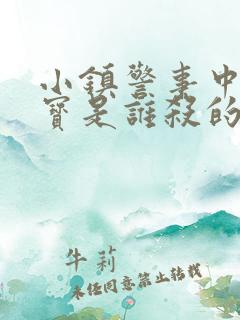 小鎮警事中
寶是誰殺的
牛莉
未经同意禁止转载